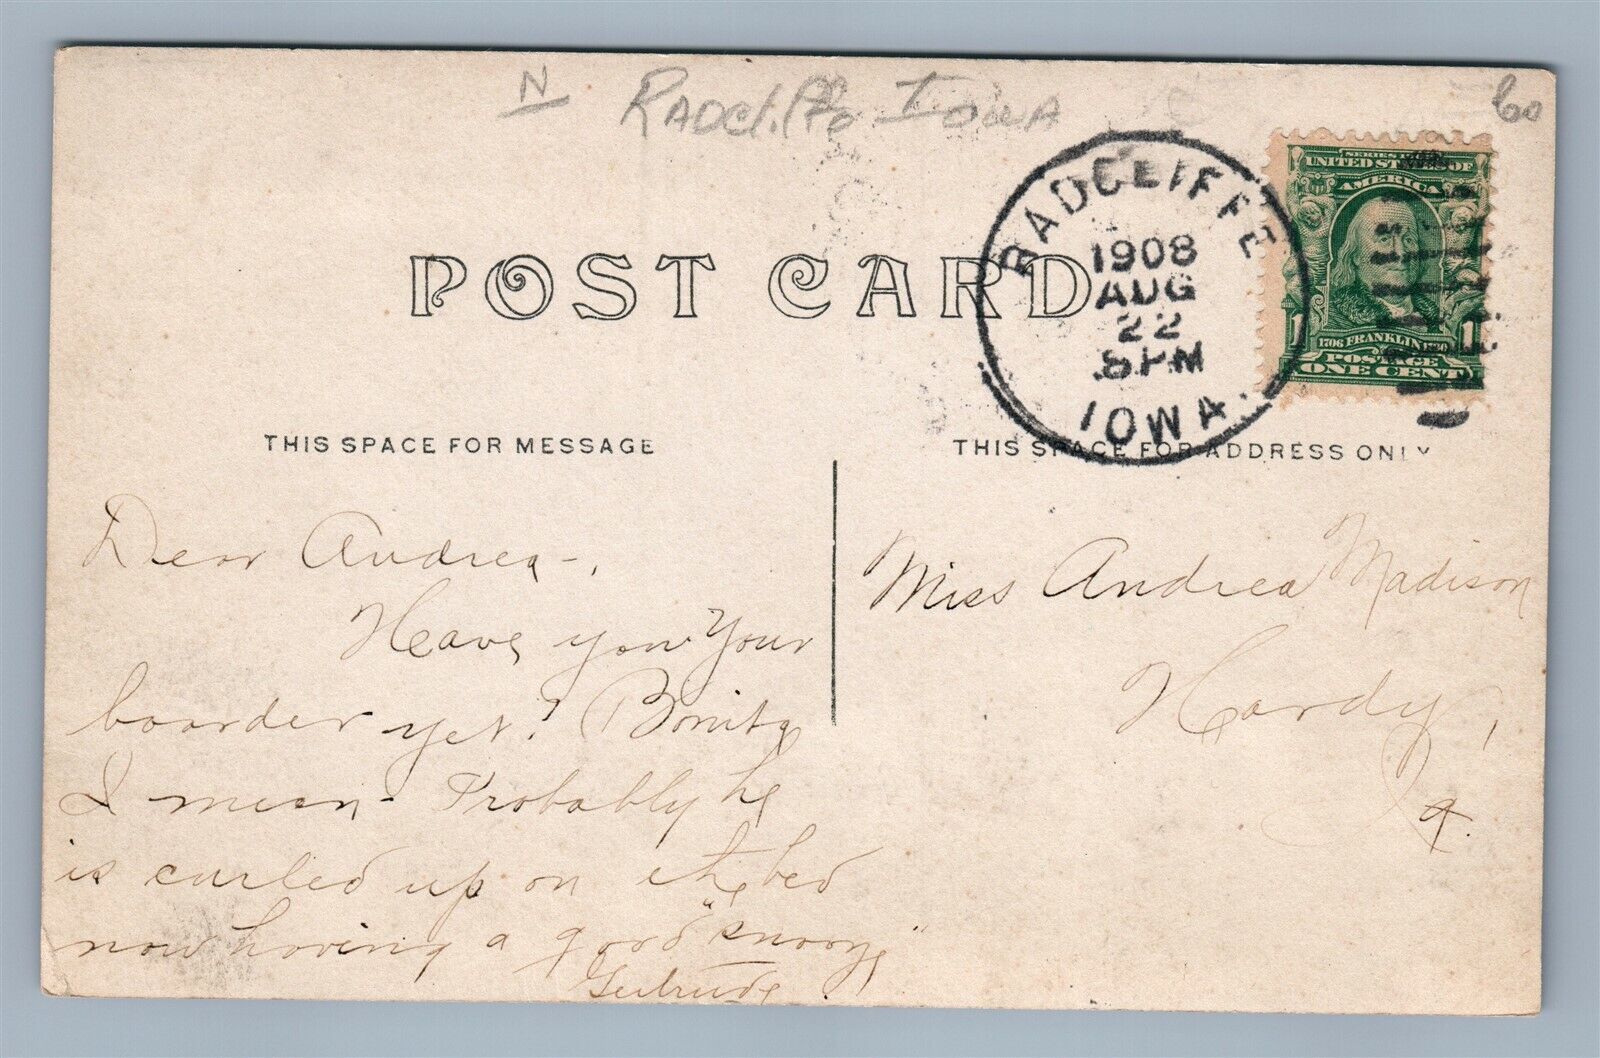 N RADCliffe IOWA 60
POST CARD
RADCLIFFE
1908
AUG
22
8 PM
IOWA.
SERIES 1902
UNITED STATES OF
AMERICA
1706 FRANKLIN 1790
1 POSTAGE 1
ONE CENT
THIS SPACE FOR MESSAGE
THIS SPACE FOR ADDRESS ONLY
Dear Andrea-,
Have you your
boarder yet? Bonita
I mean- Probably he
is curled up on the bed
now having a good "snooze"
Gertrude.
Miss Andrea Madison
Hardy,
Ia.